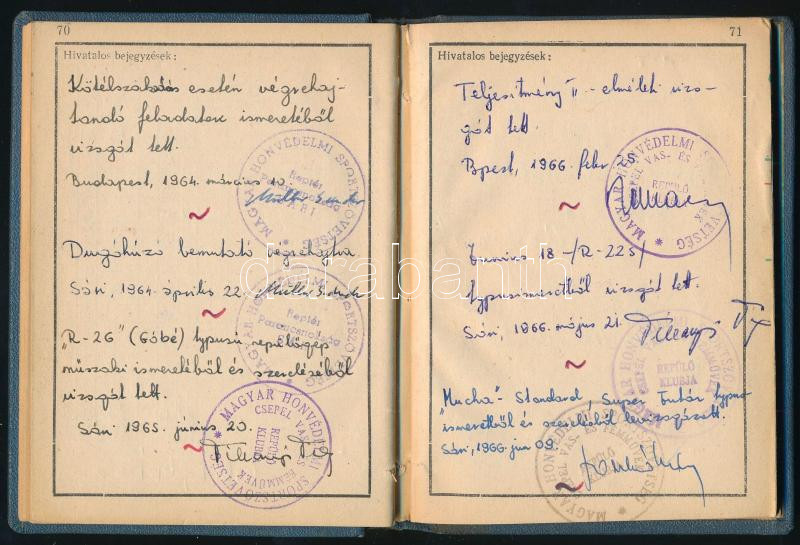 70
Hivatalos bejegyzések:
Kötélszakadás esetén végrehaj-
tandó feladatok ismeretéből
vizsgát tett.
Budapest, 1964. március 10.
Dugóhúzó bemutató végrehajtva
Sári, 1964. április 22.
„R-26" (Góbé) typusú repülőgép
műszaki ismeretéből és szereléséből
vizsgát tett.
Sári 1965. június 20.
MAGYAR HONVÉDELMI SPORTSZÖVETSÉG
Reptér
Parancsnokság
SÁRI
MAGYAR HONVÉDELMI SPORTSZÖVETSÉG
Reptér
Parancsnokság
MAGYAR HONVÉDELMI SPORTSZÖVETSÉG
CSEPEL VAS- ÉS FÉMMŰVEK
REPÜLŐ
KLUBJA
71
Hivatalos bejegyzések:
Teljesítmény II - elméleti vizs-
gát tett.
Bpest, 1966. febr 25.
Junius 18 - /R-22S/
typusismeretből vizsgát tett.
Sári, 1966. május 21.
„Mucha" Standard, Super Futár typus-
ismeretből és szerelésből levizsgázott.
Sári, 1966. jun 09.
MAGYAR HONVÉDELMI SPORTSZÖVETSÉG
CSEPEL VAS- ÉS FÉMMŰVEK
REPÜLŐ
REPÜLŐ
KLUBJA
darabanth